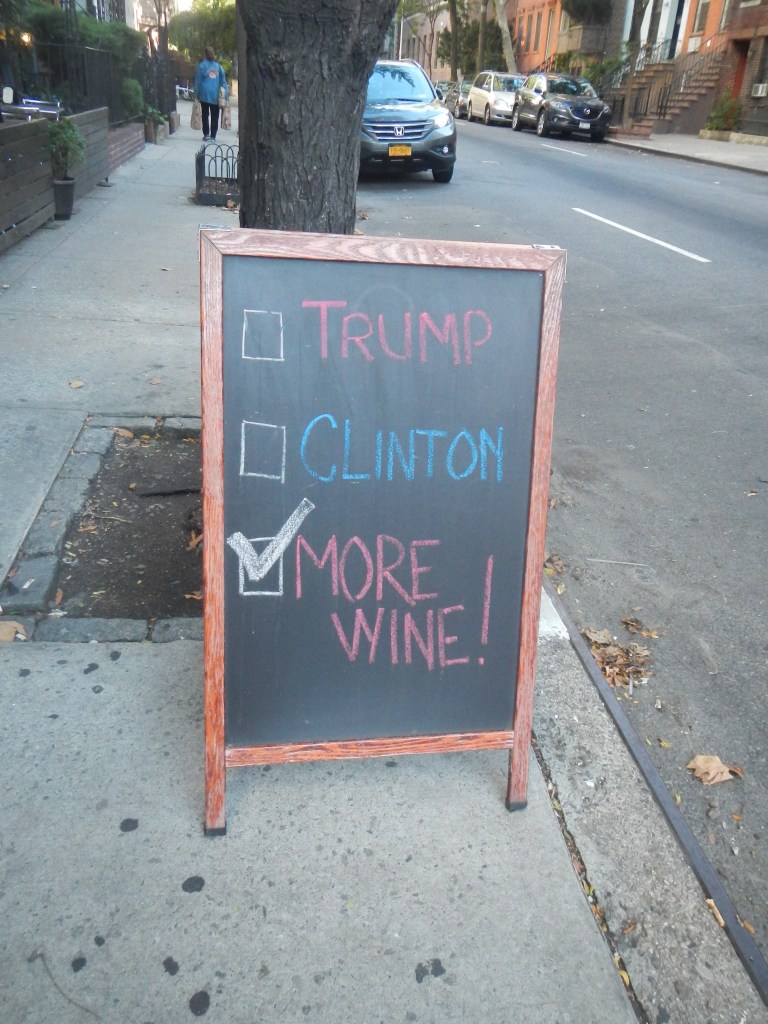 TRUMP
CLINTON
MORE
WINE!